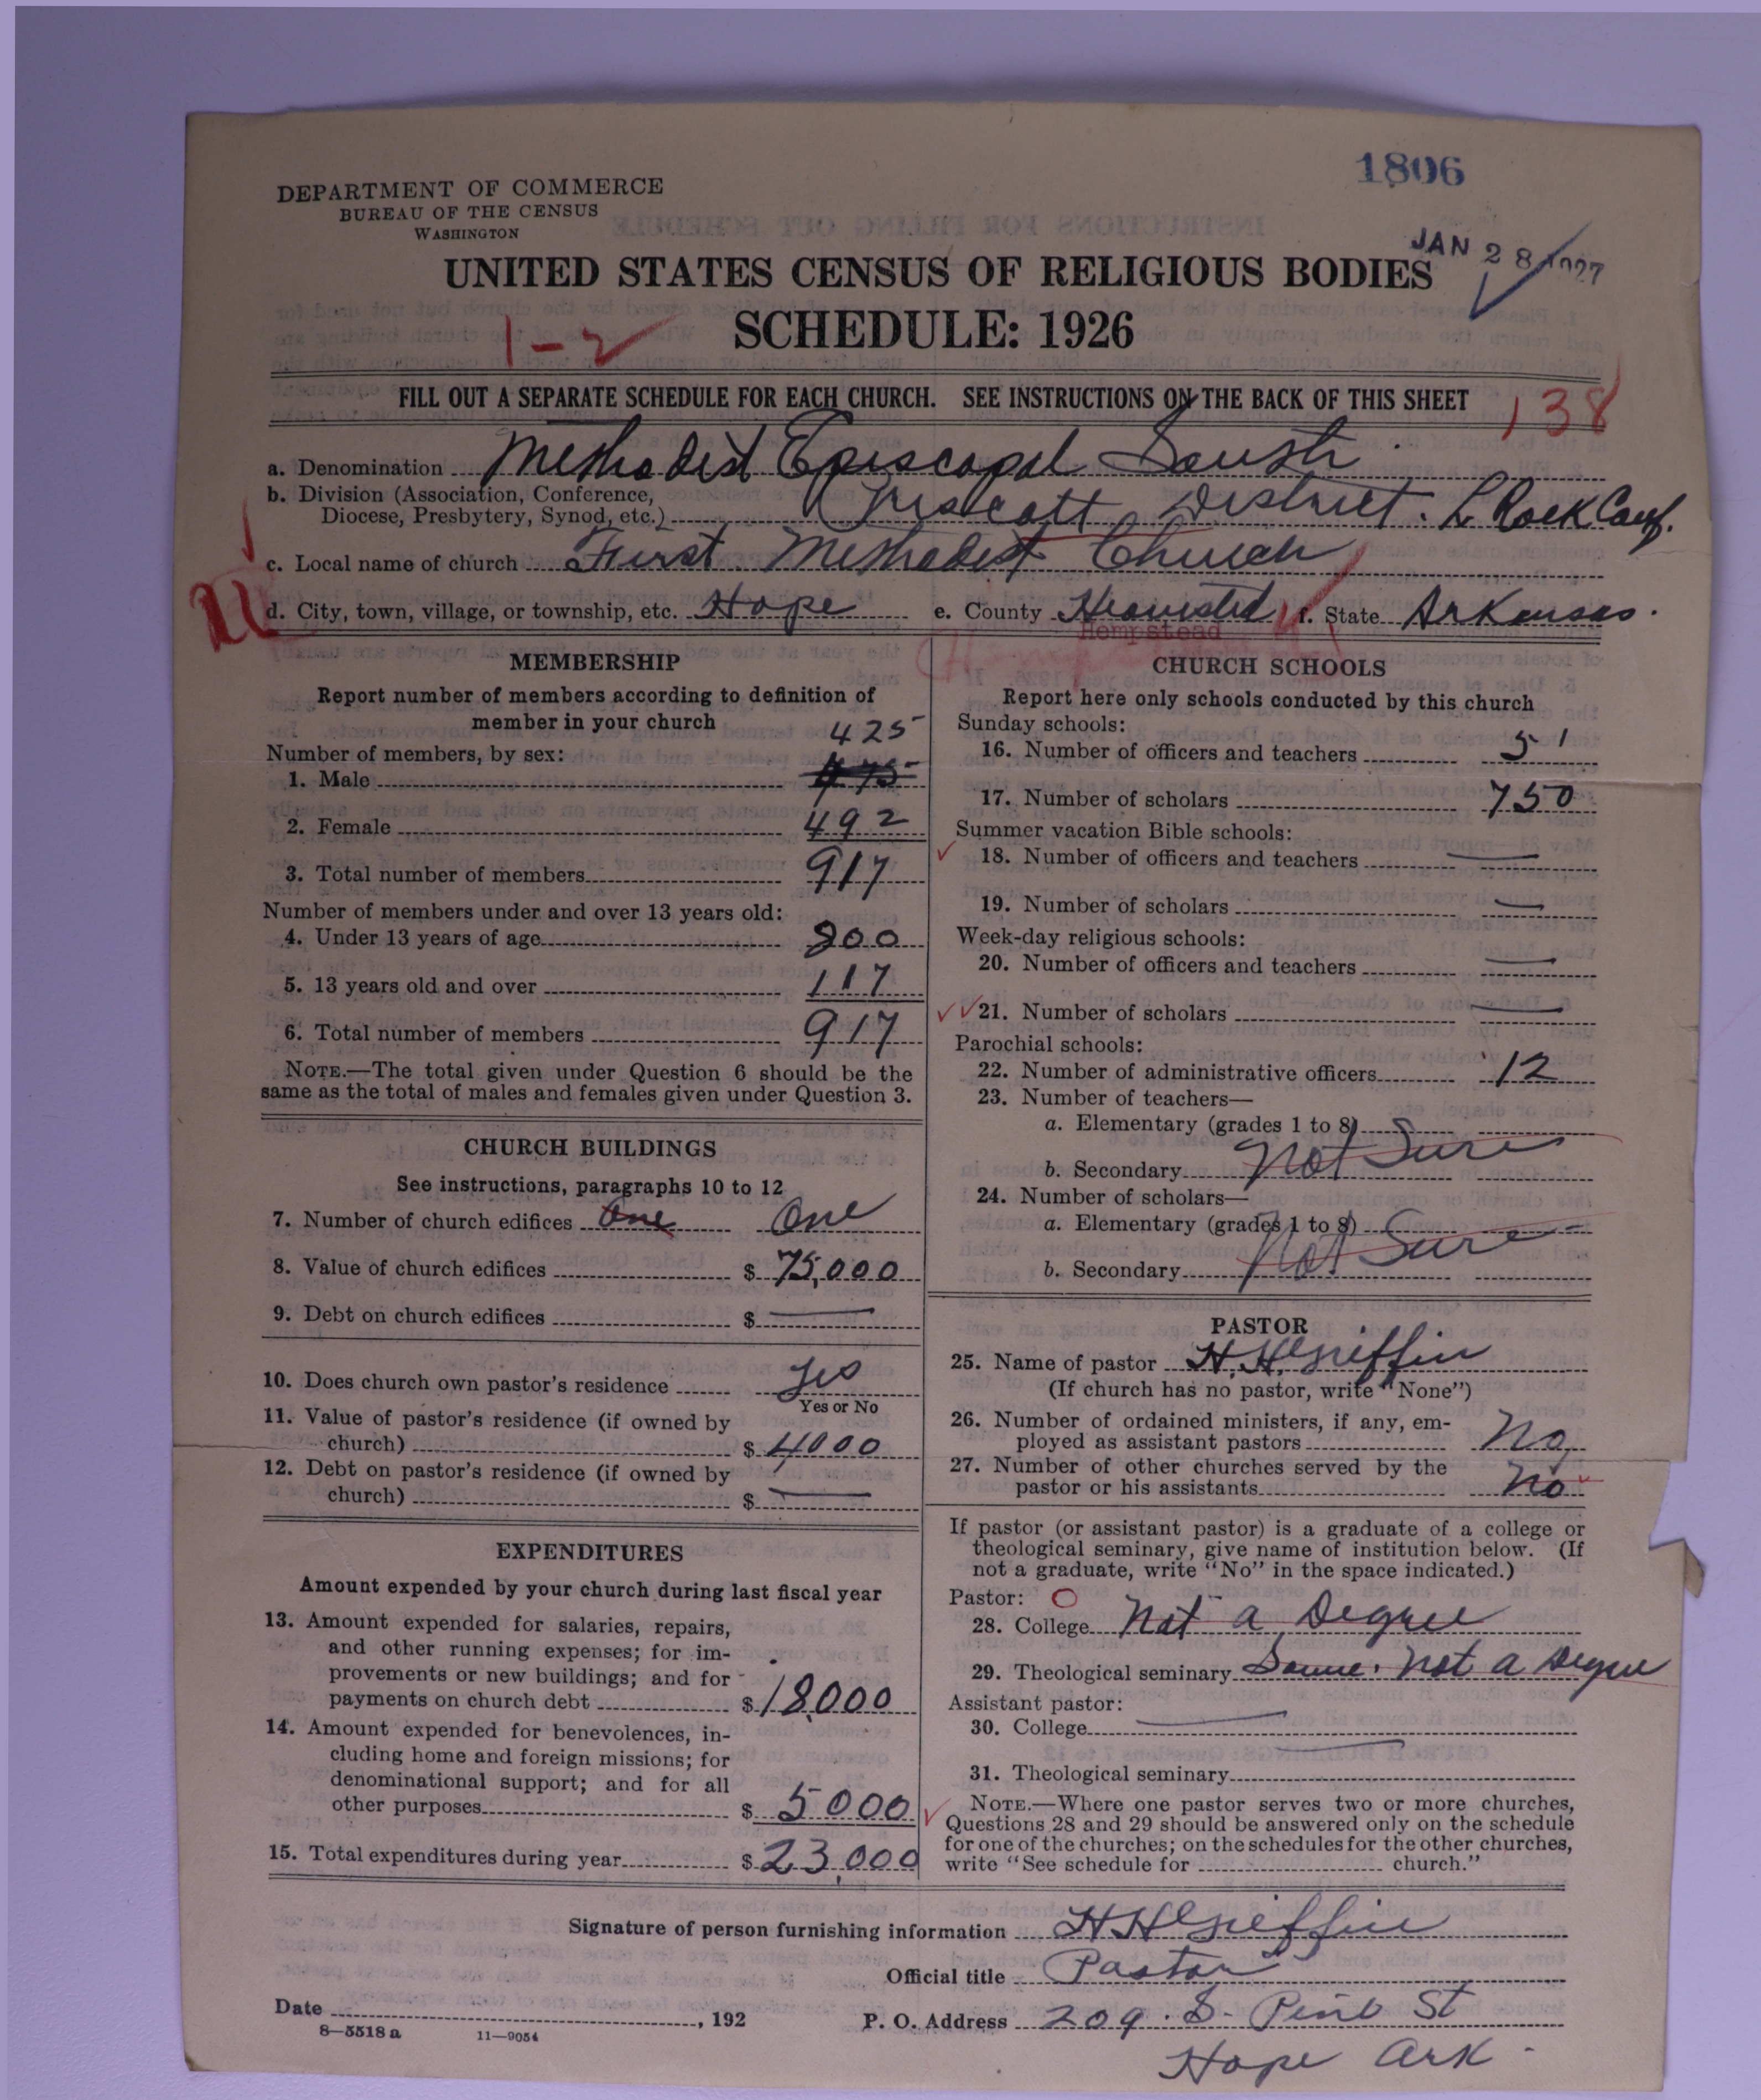 1806
DEPARTMENT OF COMMERCE
BUREAU OF THE CENSUS
WASHINGTON
JAN 28 1927
UNITED STATES CENSUS OF RELIGIOUS BODIES
SCHEDULE: 1926
1-2
FILL OUT A SEPARATE SCHEDULE FOR EACH CHURCH. SEE INSTRUCTIONS ON THE BACK OF THIS SHEET
138
a. Denomination Methodist Episcopal South
b. Division (Association, Conference, Diocese, Presbytery, Synod, etc.) Prescott District. L Rock Conf.
c. Local name of church First Methodist Church
d. City, town, village, or township, etc. Hope e. County f. State Arkansas.
Hempstead
MEMBERSHIP
Report number of members according to definition of
member in your church
Number of members, by sex:
425
1. Male 475
2. Female 492
3. Total number of members 917
Number of members under and over 13 years old:
4. Under 13 years of age 800
5. 13 years old and over 117
6. Total number of members 917
NOTE.—The total given under Question 6 should be the
same as the total of males and females given under Question 3.
CHURCH BUILDINGS
See instructions, paragraphs 10 to 12
7. Number of church edifices One One
8. Value of church edifices $ 75,000
9. Debt on church edifices $ —
10. Does church own pastor's residence Yes
Yes or No
11. Value of pastor's residence (if owned by
church) $ 4000
12. Debt on pastor's residence (if owned by
church) $ —
EXPENDITURES
Amount expended by your church during last fiscal year
13. Amount expended for salaries, repairs,
and other running expenses; for im-
provements or new buildings; and for
payments on church debt $ 18,000
14. Amount expended for benevolences, in-
cluding home and foreign missions; for
denominational support; and for all
other purposes $ 5000
15. Total expenditures during year $ 23,000
CHURCH SCHOOLS
Report here only schools conducted by this church
Sunday schools:
16. Number of officers and teachers 51
17. Number of scholars 750
Summer vacation Bible schools:
18. Number of officers and teachers —
19. Number of scholars —
Week-day religious schools:
20. Number of officers and teachers —
21. Number of scholars —
Parochial schools:
22. Number of administrative officers 12
23. Number of teachers—
a. Elementary (grades 1 to 8)
b. Secondary Not Sure
24. Number of scholars—
a. Elementary (grades 1 to 8)
b. Secondary Not Sure
PASTOR
25. Name of pastor H. H. Griffin
(If church has no pastor, write "None")
26. Number of ordained ministers, if any, em-
ployed as assistant pastors No
27. Number of other churches served by the
pastor or his assistants No
If pastor (or assistant pastor) is a graduate of a college or
theological seminary, give name of institution below. (If
not a graduate, write "No" in the space indicated.)
Pastor:
28. College Not a Degree
29. Theological seminary Same. Not a Degree
Assistant pastor:
30. College —
31. Theological seminary —
NOTE.—Where one pastor serves two or more churches,
Questions 28 and 29 should be answered only on the schedule
for one of the churches; on the schedules for the other churches,
write "See schedule for church."
Signature of person furnishing information H H Griffin
Official title Pastor
Date , 192 P. O. Address 209. S. Pine St
8—5518 a 11—9054
Hope Ark.